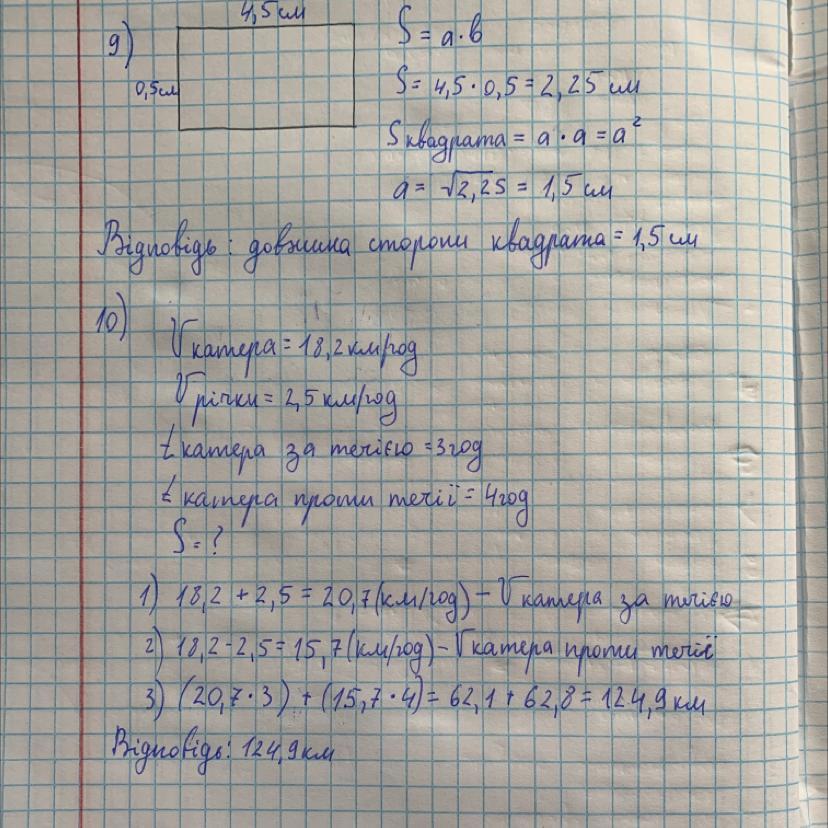 9)
4,5 см
0,5см
S = a · b
S = 4,5 · 0,5 = 2,25 см
S квадрата = a · a = a²
a = √2,25 = 1,5 см
Відповідь: довжина сторони квадрата = 1,5 см
10)
V катера = 18,2 км/год
V річки = 2,5 км/год
t катера за течією = 3 год
t катера проти течії = 4 год
S = ?
1) 18,2 + 2,5 = 20,7 (км/год) – V катера за течією
2) 18,2 - 2,5 = 15,7 (км/год) – V катера проти течії
3) (20,7 · 3) + (15,7 · 4) = 62,1 + 62,8 = 124,9 км
Відповідь: 124,9 км